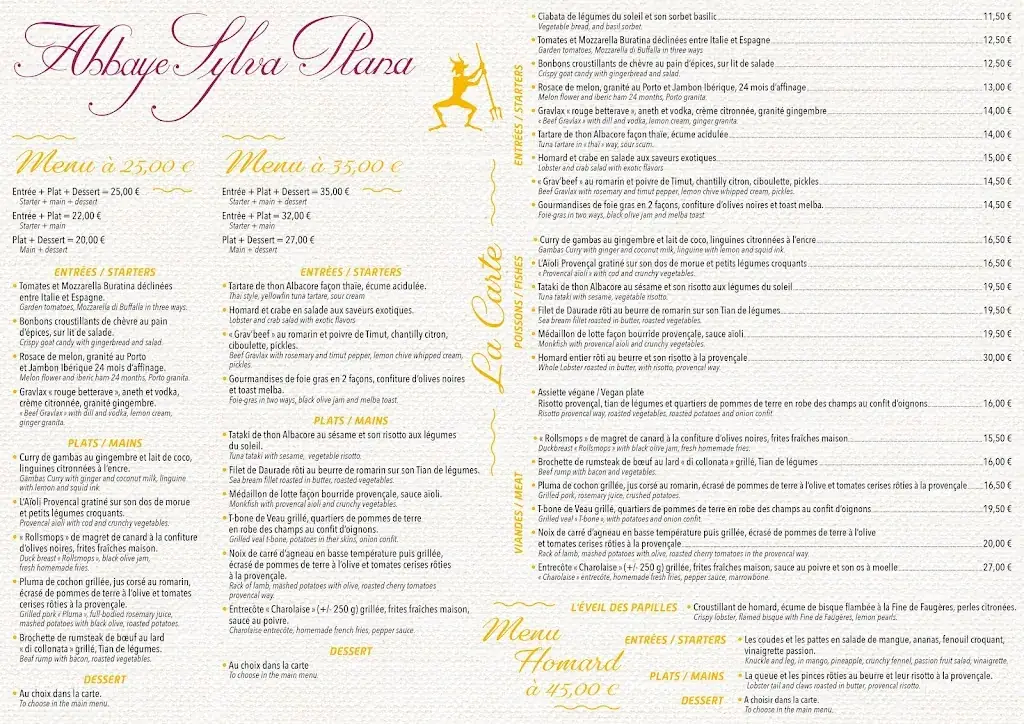 Abbaye Sylva Plana
Menu à 25,00 €
Entrée + Plat + Dessert = 25,00 €
Starter + main + dessert
Entrée + Plat = 22,00 €
Starter + main
Plat + Dessert = 20,00 €
Main + dessert
ENTRÉES / STARTERS
• Tomates et Mozzarella Buratina déclinées
entre Italie et Espagne.
Garden tomatoes, Mozzarella di Buffalla in three ways.
• Bonbons croustillants de chèvre au pain
d'épices, sur lit de salade.
Crispy goat candy with gingerbread and salad.
• Rosace de melon, granité au Porto
et Jambon Ibérique 24 mois d'affinage.
Melon flower and iberic ham 24 months, Porto granita.
• Gravlax « rouge betterave », aneth et vodka,
crème citronnée, granité gingembre.
« Beef Gravlax » with dill and vodka, lemon cream,
ginger granita.
PLATS / MAINS
• Curry de gambas au gingembre et lait de coco,
linguines citronnées à l'encre.
Gambas Curry with ginger and coconut milk, linguine
with lemon and squid ink.
• L'Aïoli Provencal gratiné sur son dos de morue
et petits légumes croquants.
Provencal aioli with cod and crunchy vegetables.
• « Rollsmops » de magret de canard à la confiture
d'olives noires, frites fraîches maison.
Duck breast « Rollsmops », black olive jam,
fresh homemade fries.
• Pluma de cochon grillée, jus corsé au romarin,
écrasé de pommes de terre à l'olive et tomates
cerises rôties à la provençale.
Grilled pork « Pluma », full-bodied rosemary juice,
mashed potatoes with black olive, roasted tomatoes.
• Brochette de rumsteak de bœuf au lard
« di collonata » grillé, Tian de légumes.
Beef rump with bacon, roasted vegetables.
DESSERT
• Au choix dans la carte.
To choose in the main menu.
Menu à 35,00 €
Entrée + Plat + Dessert = 35,00 €
Starter + main + dessert
Entrée + Plat = 32,00 €
Starter + main
Plat + Dessert = 27,00 €
Main + dessert
ENTRÉES / STARTERS
• Tartare de thon Albacore façon thaïe, écume acidulée.
Thai style, yellowfin tuna tartare, sour cream
• Homard et crabe en salade aux saveurs exotiques.
Lobster and crab salad with exotic flavors
• « Grav'beef » au romarin et poivre de Timut, chantilly citron,
ciboulette, pickles.
Beef Gravlax with rosemary and timut pepper, lemon chive whipped cream,
pickles.
• Gourmandises de foie gras en 2 façons, confiture d'olives noires
et toast melba.
Foie-gras in two ways, black olive jam and melba toast.
PLATS / MAINS
• Tataki de thon Albacore au sésame et son risotto aux légumes
du soleil.
Tuna tataki with sesame, vegetable risotto.
• Filet de Daurade rôti au beurre de romarin sur son Tian de légumes.
Sea bream fillet roasted in butter, roasted vegetables.
• Médaillon de lotte façon bourride provençale, sauce aïoli.
Monkfish with provencal aioli and crunchy vegetables.
• T-bone de Veau grillé, quartiers de pommes de terre
en robe des champs au confit d'oignons.
Grilled veal t-bone, potatoes in ther skins, onion confit.
• Noix de carré d'agneau en basse température puis grillée,
écrasé de pommes de terre à l'olive et tomates cerises rôties
à la provençale.
Rack of lamb, mashed potatoes with olive, roasted cherry tomatoes
provencal way.
• Entrecôte « Charolaise » (+/- 250 g) grillée, frites fraîches maison,
sauce au poivre.
Charolaise entrecôte, homemade french fries, pepper sauce.
DESSERT
• Au choix dans la carte
To choose in the main menu.
La Carte
ENTRÉES / STARTERS
• Ciabata de légumes du soleil et son sorbet basilic 11,50 €
Vegetable bread, and basil sorbet.
• Tomates et Mozzarella Buratina déclinées entre Italie et Espagne 12,50 €
Garden tomatoes, Mozzarella di Buffalla in three ways
• Bonbons croustillants de chèvre au pain d'épices, sur lit de salade 12,50 €
Crispy goat candy with gingerbread and salad.
• Rosace de melon, granité au Porto et Jambon Ibérique, 24 mois d'affinage 13,00 €
Melon flower and iberic ham 24 months, Porto granita.
• Gravlax « rouge betterave », aneth et vodka, crème citronnée, granité gingembre 14,00 €
« Beef Gravlax » with dill and vodka, lemon cream, ginger granita.
• Tartare de thon Albacore façon thaïe, écume acidulée 14,00 €
Tuna tartare in « thaï » way, sour scum.
• Homard et crabe en salade aux saveurs exotiques 15,00 €
Lobster and crab salad with exotic flavors
• « Grav'beef » au romarin et poivre de Timut, chantilly citron, ciboulette, pickles 14,50 €
Beef Gravlax with rosemary and timut pepper, lemon chive whipped cream, pickles.
• Gourmandises de foie gras en 2 façons, confiture d'olives noires et toast melba. 14,50 €
Foie-gras in two ways, black olive jam and melba toast.
POISSONS / FISHES
• Curry de gambas au gingembre et lait de coco, linguines citronnées à l'encre 16,50 €
Gambas Curry with ginger and coconut milk, linguine with lemon and squid ink.
• L'Aïoli Provençal gratiné sur son dos de morue et petits légumes croquants 16,50 €
« Provencal aioli » with cod and crunchy vegetables.
• Tataki de thon Albacore au sésame et son risotto aux légumes du soleil 19,50 €
Tuna tataki with sesame, vegetable risotto.
• Filet de Daurade rôti au beurre de romarin sur son Tian de légumes 19,50 €
Sea bream fillet roasted in butter, roasted vegetables.
• Médaillon de lotte façon bourride provençale, sauce aïoli 19,50 €
Monkfish with provencal aioli and crunchy vegetables.
• Homard entier rôti au beurre et son risotto à la provençale 30,00 €
Whole Lobster roasted in butter, with risotto, provencal way.
• Assiette végane / Vegan plate
Risotto provençal, tian de légumes et quartiers de pommes de terre en robe des champs au confit d'oignons 16,00 €
Risotto provencal way, roasted vegetables, roasted potatoes and onion confit.
VIANDES / MEAT
• « Rollsmops » de magret de canard à la confiture d'olives noires, frites fraîches maison 15,50 €
Duckbreast « Rollsmops » with black olive jam, fresh homemade fries.
• Brochette de rumsteak de bœuf au lard « di collonata » grillé, Tian de légumes 16,00 €
Beef rump with bacon and vegetables.
• Pluma de cochon grillée, jus corsé au romarin, écrasé de pommes de terre à l'olive et tomates cerises rôties à la provençale 16,50 €
Grilled pork, rosemary juice, crushed potatoes.
• T-bone de Veau grillé, quartiers de pommes de terre en robe des champs au confit d'oignons 19,50 €
Grilled veal « T-bone », with potatoes and onion confit.
• Noix de carré d'agneau en basse température puis grillée, écrasé de pommes de terre à l'olive
et tomates cerises rôties à la provençale 20,00 €
Rack of lamb, mashed potatoes with olive, roasted cherry tomatoes in the provencal way.
• Entrecôte « Charolaise » (+/- 250 g) grillée, frites fraîches maison, sauce au poivre et son os à moelle 27,00 €
« Charolaise » entrecôte, homemade fresh fries, pepper sauce, marrowbone.
Menu
Homard
à 45,00 €
L'ÉVEIL DES PAPILLES
• Croustillant de homard, écume de bisque flambée à la Fine de Faugères, perles citronées.
Crispy lobster, flamed bisque with Fine de Faugères, lemon pearls.
ENTRÉES / STARTERS
• Les coudes et les pattes en salade de mangue, ananas, fenouil croquant,
vinaigrette passion.
Knuckle and leg, in mango, pineapple, crunchy fennel, passion fruit salad, vinaigrette.
PLATS / MAINS
• La queue et les pinces rôties au beurre et leur risotto à la provençale.
Lobster tail and claws roasted in butter, provencal risotto.
DESSERT
• A choisir dans la carte.
To choose in the main menu.